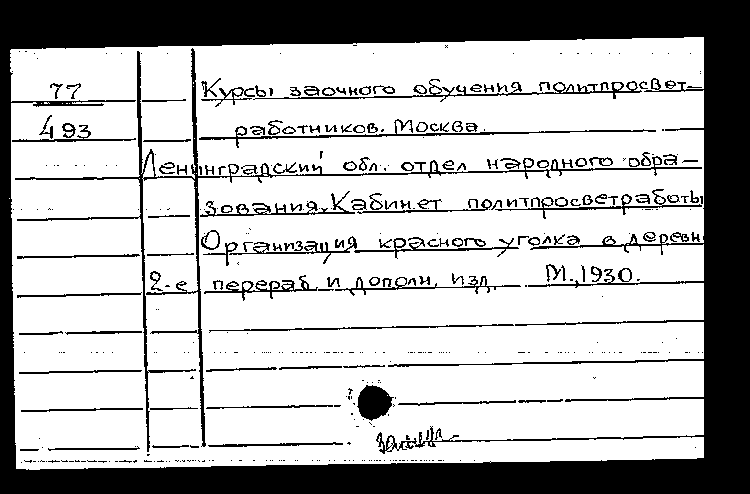 77
493
Курсы заочного обучения политпросвет-
работников. Москва.
Ленинградский обл. отдел народного обра-
зования. Кабинет политпросветработы
Организация красного уголка в деревн
2-е перераб. и дополн. изд. М., 1930.